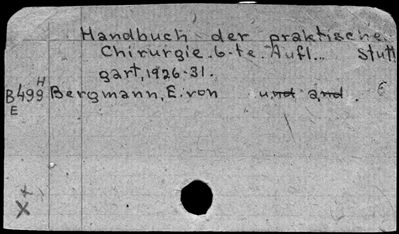 Handbuch der praktische
Chirurgie. 6-te. Aufl... Stutt
gart, 1926-31.
H
B499 Bergmann, E. von und and.
E
X